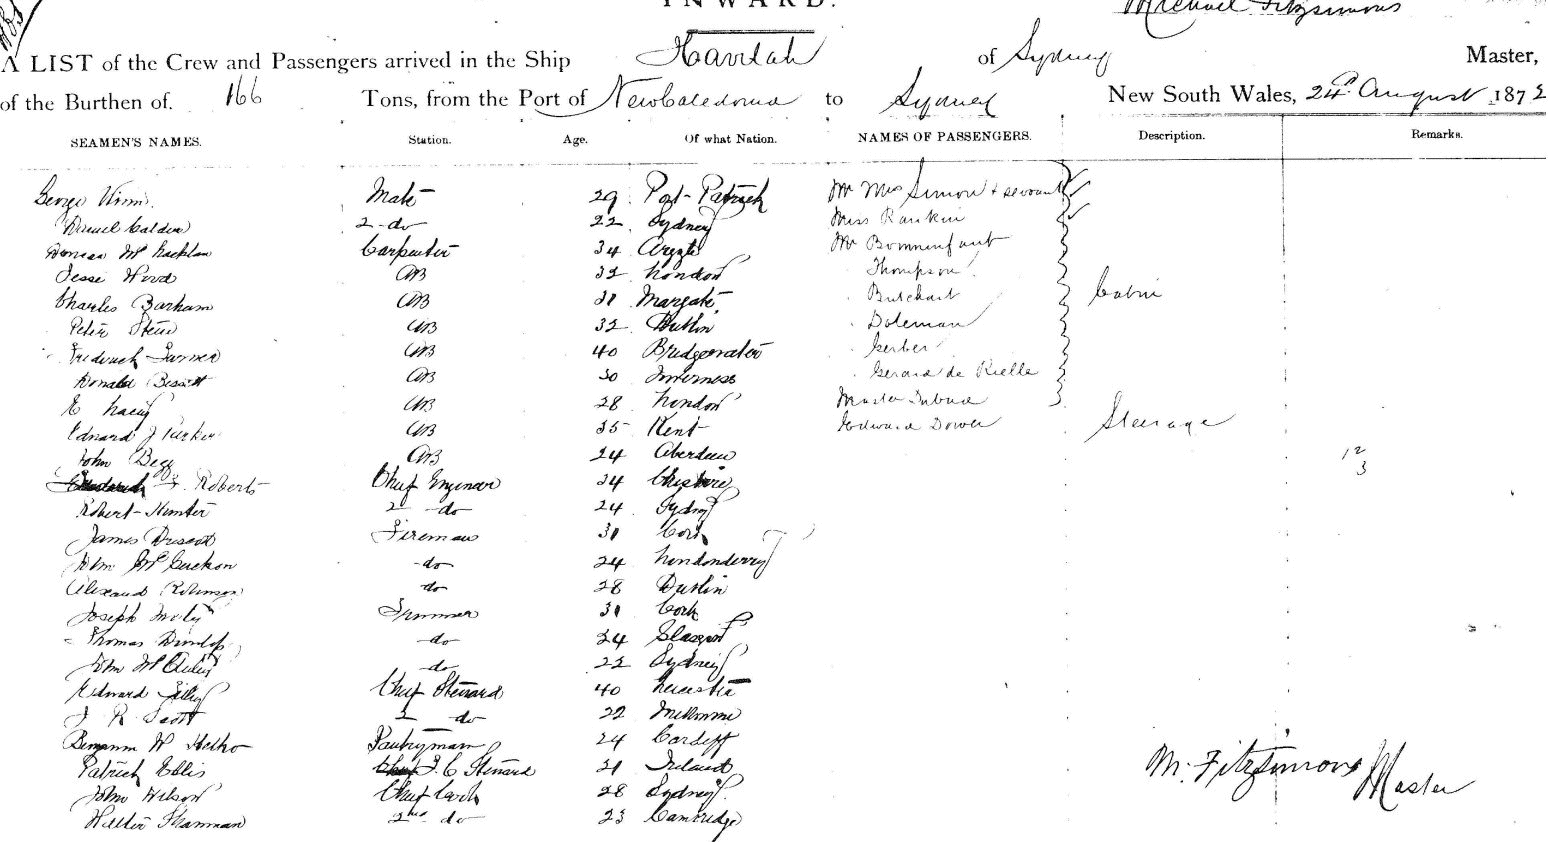 INWARD.
Michael Fitzsimons
A LIST of the Crew and Passengers arrived in the Ship Havilah of Sydney Master,
of the Burthen of. 166 Tons, from the Port of New Caledonia to Sydney New South Wales, 24th August 1872
SEAMEN'S NAMES. Station. Age. Of what Nation. NAMES OF PASSENGERS. Description. Remarks.
George Mate 29 Port-Patrick Mr Mrs Simon + servant
2 - do 22 Sydney Miss Rankin
Carpenter 34 Argyle Mr Bonninfant
Jesse Wood AB 32 London Thompson
Charles Barham AB 31 Margate Butchart Cabin
Peter AB 32 Dublin Doleman
Frederick Turner AB 40 Bridgewater Gerber
Donald Bissett AB 30 Inverness Gerard de Rielle
E Lacey AB 28 London Master
Edward J Parker AB 35 Kent Edward Dower Steerage
John Begg AB 24 Aberdeen 12
F. Roberts Chief Engineer 34 Cheshire 3
Robert Hunter 2 - do 24 Sydney
James Driscoll Fireman 31 Cork
John Mc - do 24 Londonderry
Alexand Robinson do 28 Dublin
Joseph 31 Cork
Thomas Dunlop - do 24 Glasgow
John Mc - do 22 Sydney
Edward Chief Steward 40 Leicester
J R Scott 2 - do 22 Melbourne
Benjamin W Pantryman 24 Cardiff
Patrick Ellis F. C Steward 21 Ireland M. Fitzsimons Master
John Wilson Chief Cook 28 Sydney
Walter 2nd do 23 Cambridge